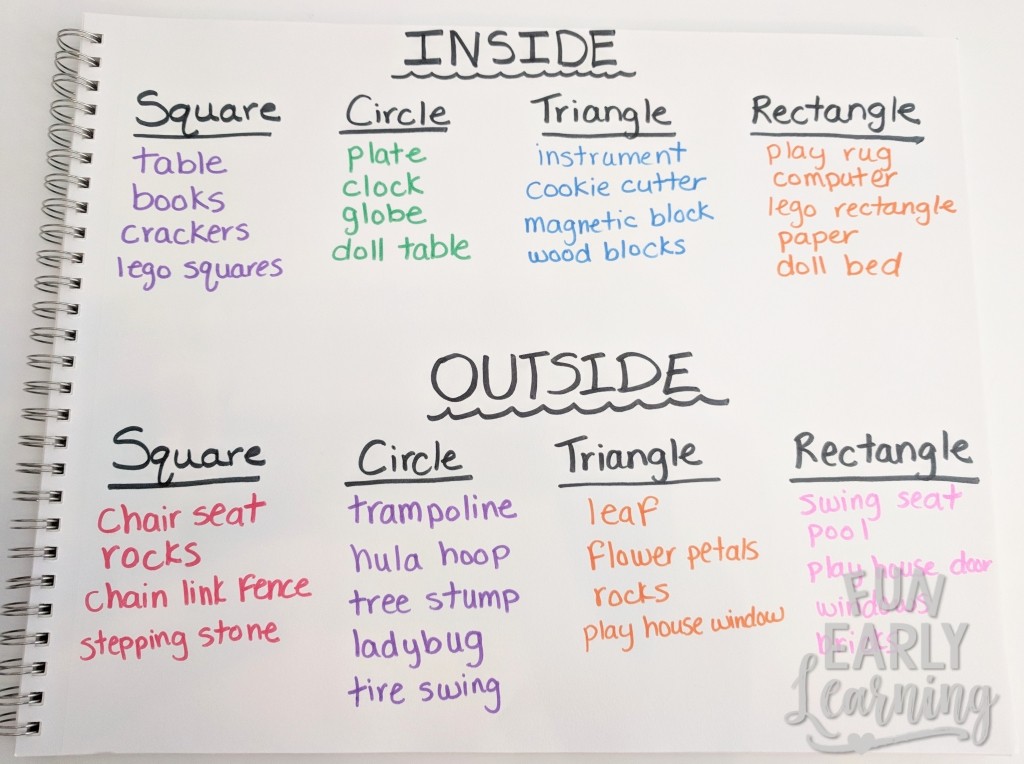 INSIDE
Square
table
books
crackers
lego squares
Circle
plate
clock
globe
doll table
Triangle
instrument
cookie cutter
magnetic block
wood blocks
Rectangle
play rug
computer
lego rectangle
paper
doll bed
OUTSIDE
Square
Chair seat
rocks
chain link fence
stepping stone
Circle
trampoline
hula hoop
tree stump
ladybug
tire swing
Triangle
leaf
flower petals
rocks
play house window
Rectangle
swing seat
pool
play house door
windows
bricks
FUN
EARLY
Learning